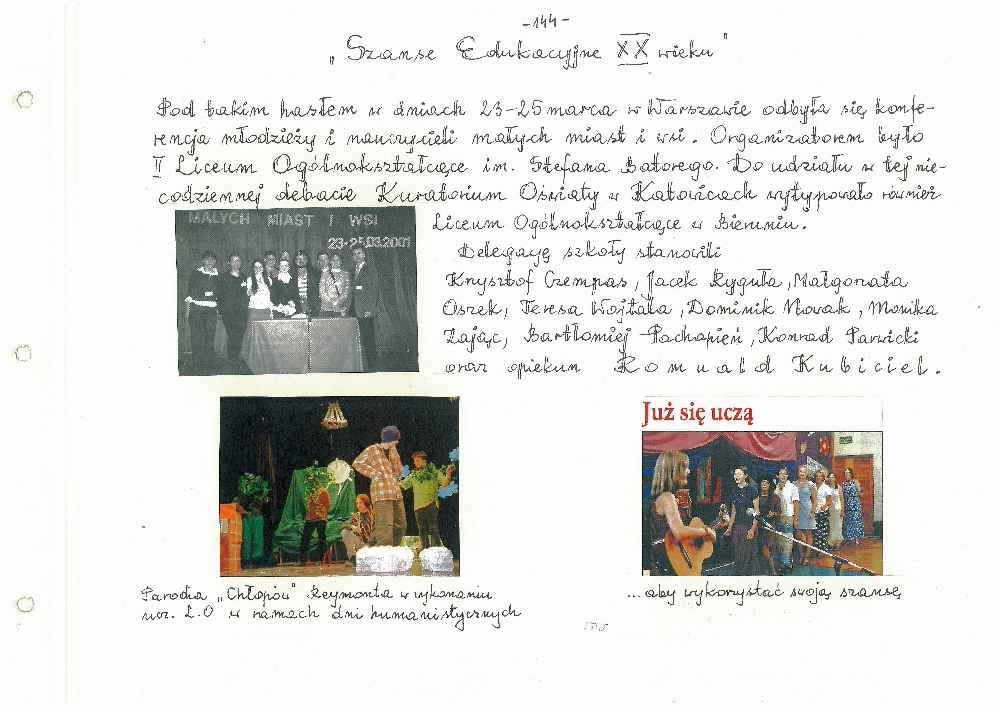 -144-
„Szanse Edukacyjne XX wieku"
Pod takim hasłem w dniach 23-25 marca w Warszawie odbyła się konfe-
rencja młodzieży i nauczycieli małych miast i wsi. Organizatorem było
II Liceum Ogólnokształcące im. Stefana Batorego. Do udziału w tej nie-
codziennej debacie Kuratorium Oświaty w Katowicach wytypowało również
Liceum Ogólnokształcące w Bieruniu.
MAŁYCH MIAST I WSI
23-25.03.2001
Delegację szkoły stanowili
Krzysztof Czempas, Jacek Ryguła, Małgorzata
Oszek, Teresa Wojtala, Dominik Nowak, Monika
Zając, Bartłomiej Pachapień, Konrad Parzicki
oraz opiekun Romuald Kubiciel.
Już się uczą
Parodia „Chłopów" Reymonta w wykonaniu
ucz. L.O w ramach dni humanistycznych
...aby wykorzystać swoją szansę